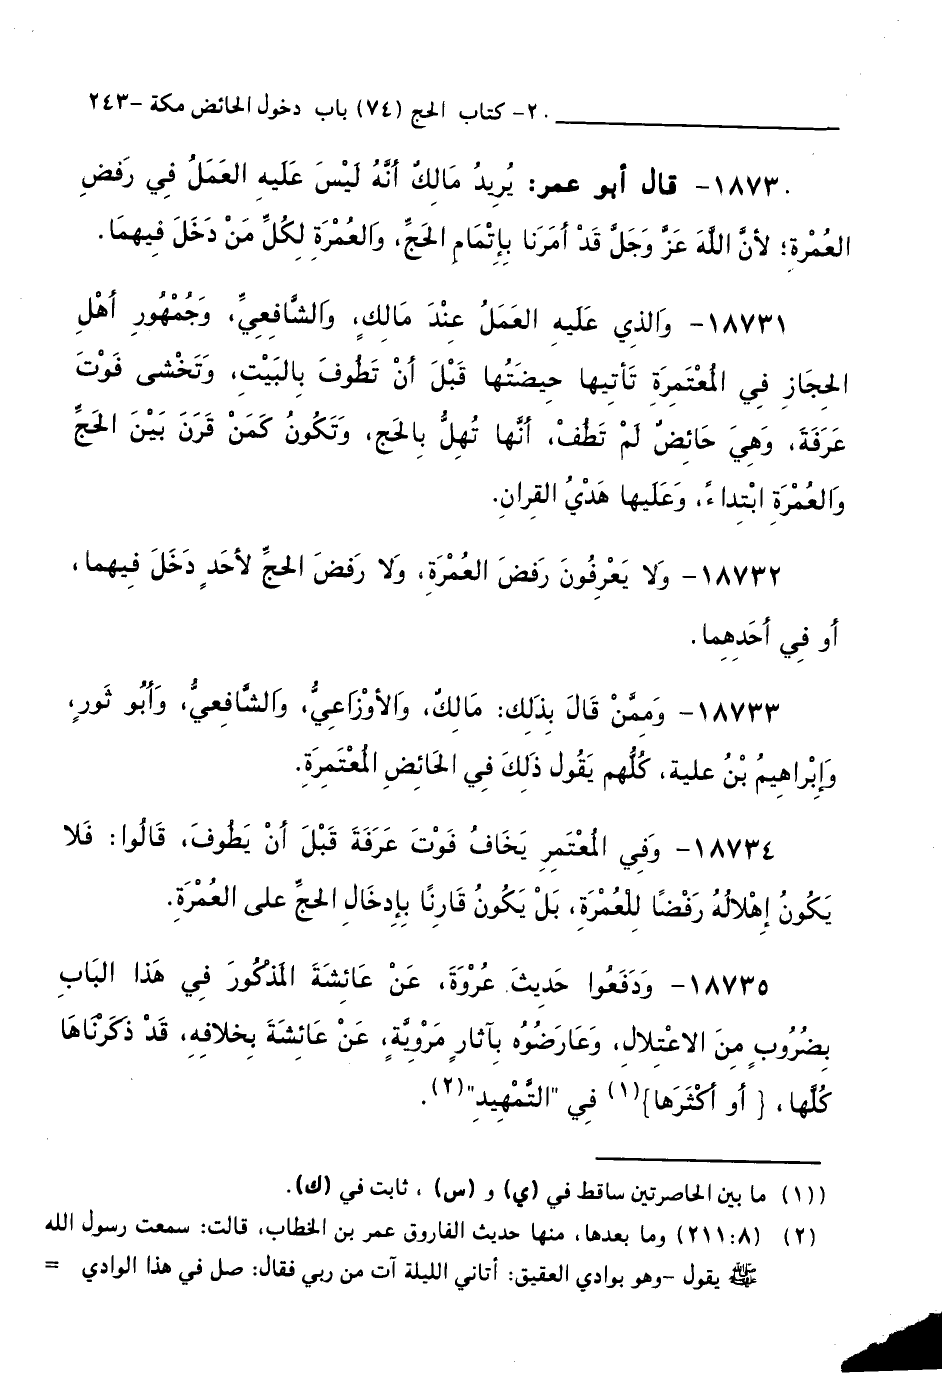 ٢٠- كتاب الحج (٧٤) باب دخول الحائض مكة -٢٤٣
١٨٧٣٠- قال أبو عمر: يُرِيدُ مَالِكٌ أنَّهُ لَيْسَ عَلَيهِ العَمَلُ فِي رَفضِ
العُمْرَةِ؛ لأنَّ اللَّهَ عَزَّ وَجَلَّ قَدْ أمَرَنا بِإتْمَامِ الحَجِّ، وَالعُمْرَةِ لِكُلِّ مَنْ دَخَلَ فِيهِمَا.
١٨٧٣١- وَالذي عَلَيهِ العَمَلُ عِنْدَ مَالِكٍ، وَالشَّافِعِيِّ، وَجُمْهُورِ أهْلِ
الحِجَازِ فِي المُعْتَمِرَةِ تَأتيها حيضَتُها قَبْلَ أنْ تَطُوفَ بِالبَيْتِ، وَتَخْشى فَوْتَ
عَرَفَةَ، وَهِيَ حَائِضٌ لَمْ تَطُفْ، أنَّها تُهِلُّ بِالحَجِ، وَتَكُونُ كَمَنْ قَرَنَ بَيْنَ الحَجِّ
وَالعُمْرَةِ ابْتِداءً، وَعَلَيها هَدْيُ القرانِ.
١٨٧٣٢- وَلا يَعْرِفُونَ رَفضَ العُمْرَةِ، وَلا رَفضَ الحجِّ لأحَدٍ دَخَلَ فيهِما،
أو فِي أحَدِهِما.
١٨٧٣٣- وَمِمَّنْ قَالَ بِذَلِكَ: مَالِكٌ، وَالأوْزَاعِيُّ، وَالشَّافعِيُّ، وَأبُو ثَورٍ،
وَإبْراهِيمُ بْنُ علية، كُلُّهم يَقُول ذَلِكَ فِي الحَائِضِ المُعْتَمِرَةِ.
١٨٧٣٤- وَفِي المُعْتَمِرِ يَخَافُ فَوْتَ عَرَفَةَ قَبْلَ أنْ يَطُوفَ، قَالُوا: فَلا
يَكُونُ إهْلالُهُ رَفْضًا لِلْعُمْرَةِ، بَلْ يَكُونُ قَارِنًا بِإدخَالِ الحجِّ على العُمْرَةِ.
١٨٧٣٥- وَدَفَعُوا حَدِيثَ عُرْوَةَ، عَنْ عَائِشَةَ المَذكُورَ فِي هَذا البَابِ
بِضُرُوبٍ مِنَ الاعْتِلالِ، وَعَارَضُوُه بِآثارٍ مَرْوِيَّةٍ، عَنْ عائِشَةَ بِخلافِهِ، قَدْ ذكَرْنَاهَا
كُلَّها، { أو أكْثَرَها}(١) فِي "التَّمْهِيدِ"(٢).
((١) ما بين الحاصرتين ساقط في (ي) و (س) ، ثابت في (ك).
(٢) (٢١١:٨) وما بعدها، منها حديث الفاروق عمر بن الخطاب، قالت: سمعت رسول الله
ﷺ يقول -وهو بوادي العقيق: أتاني الليلة آت من ربي فقال: صل في هذا الوادي =